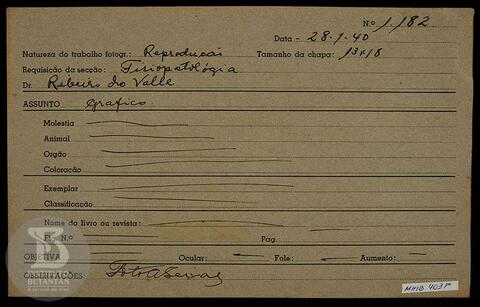 N.o 1.182
Data - 28-1-40
Natureza do trabalho fotogr.: Reprodução Tamanho da chapa: 13x18
Requisição da secção: Fisiopatológia
Dr. Ribeiro do Valle
ASSUNTO Grafico
Molestia
Animal
Orgão
Coloração
Exemplar
Classificação
Nome do livro ou revista:
Fig. N.o Pag.
OBJETIVA Ocular: Fole: Aumento:
OBSERVAÇÕES:
BUTANTAN